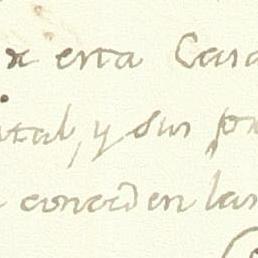 x esta Casa
ital, y sus pr
conceden las